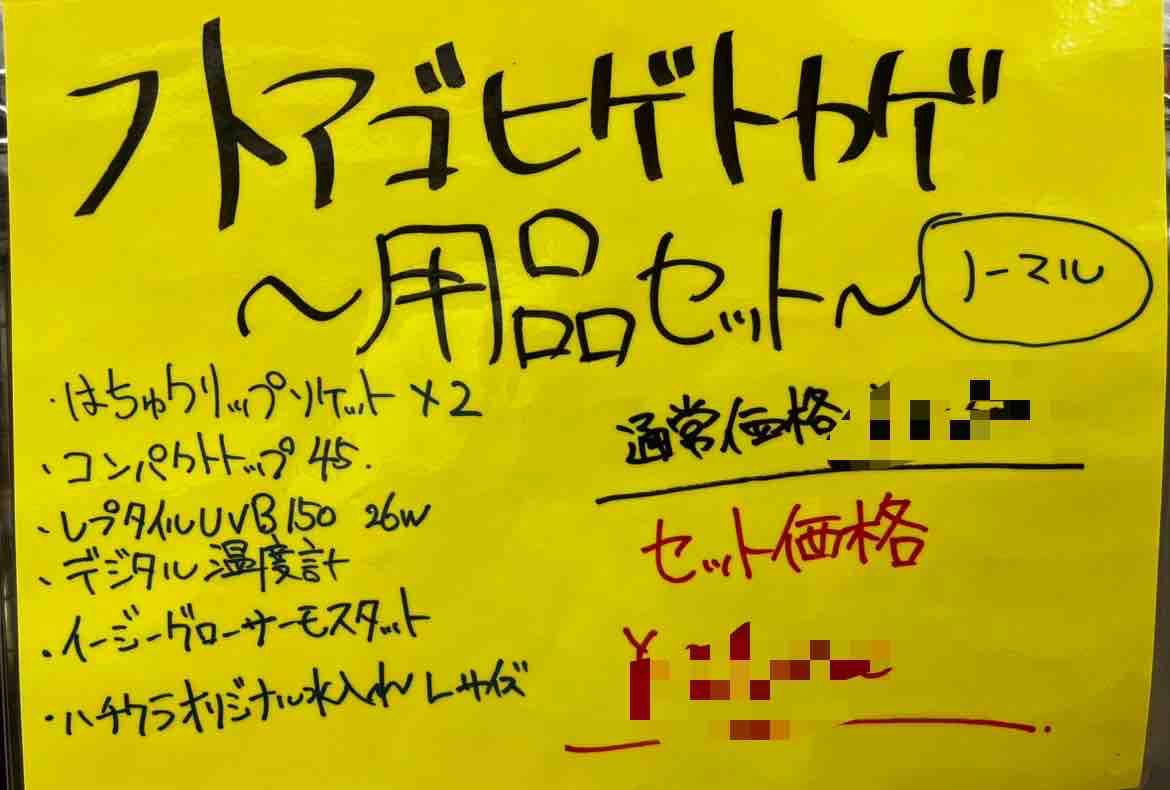 フトアゴヒゲトカゲ
～用品セット～
ノーマル
・はちゅクリップソケット ×2
・コンパクトトップ 45.
・レプタイルUVB150 26W
・デジタル温度計
・イージーグローサーモスタット
・ハチクラオリジナル水入れ Lサイズ
通常価格
セット価格
¥